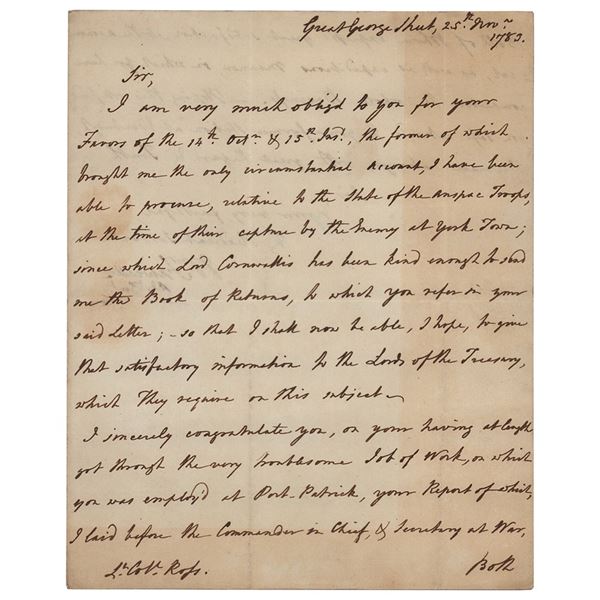 Great George Street, 25th Novr
1783.
Sir,
I am very much oblig'd to you for your
Favors of the 14th. Octr & 15th Inst., the former of which
brought me the only circumstantial account, I have been
able to procure, relative to the State of the Anspac Troops,
at the time of their capture by the Enemy at York Town;
since which Lord Cornwallis has been kind enough to send
me the Book of Returns, to which you refer in your
said Letter; - so that I shall now be able, I hope, to give
that satisfactory information to the Lords of the Treasury,
which They require on this subject —
I sincerely congratulate you, on your having at length
got through the very troublesome Job of Work, on which
you was employ'd at Port-Patrick, your Report of which,
I laid before the Commander in Chief, & Secretary at War,
Lt. Colo. Ross.
Both